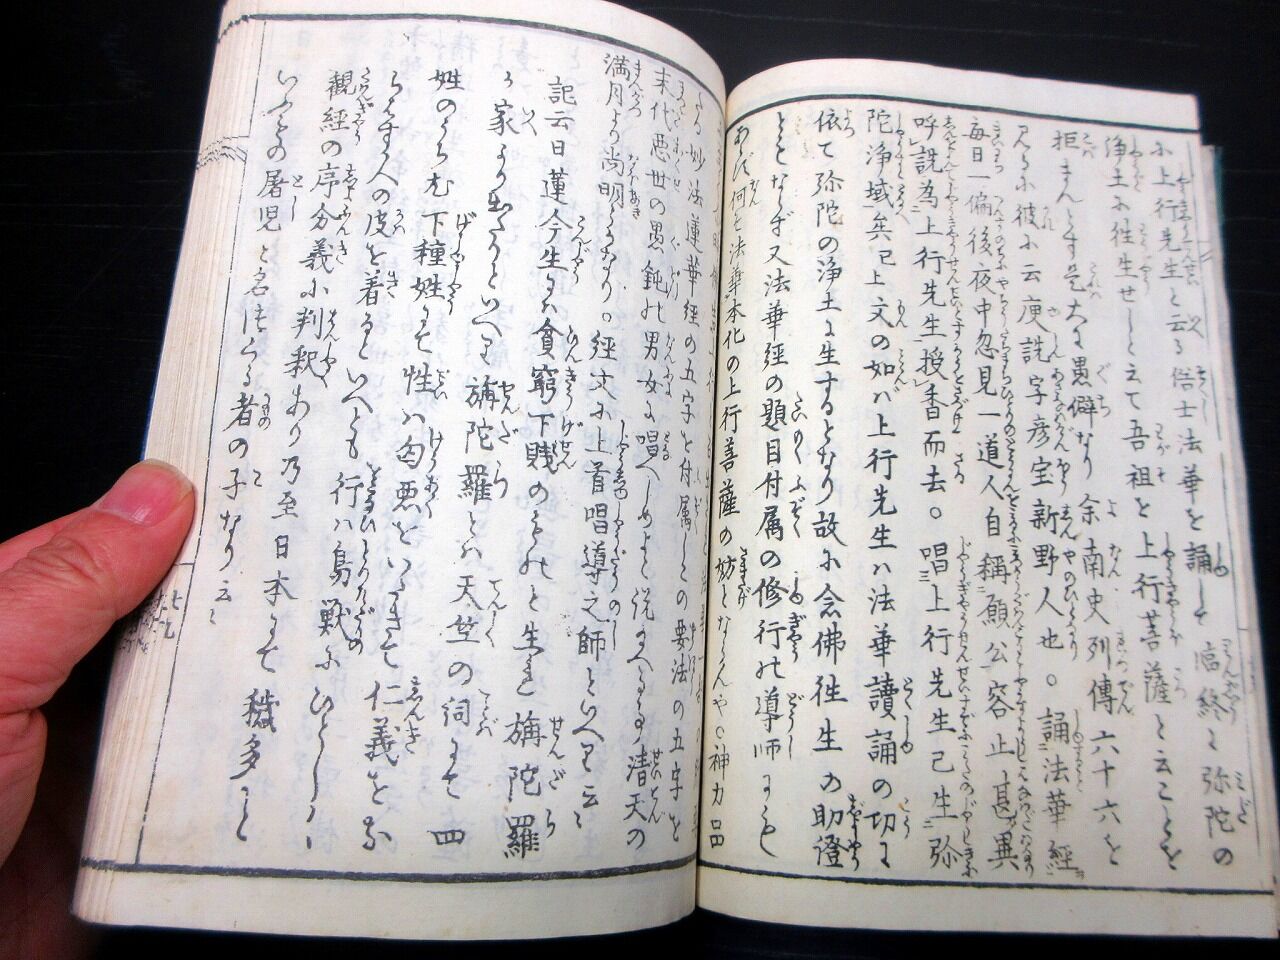 に上行先生と云る俗士法華を誦して臨終に弥陀の
浄土に往生せしと云て吾祖を上行菩薩と云ことを
拒まんとす是大に愚僻なり余南史列傳六十六を
見るに彼に云庾詵字彦宝新野人也。誦法華経
毎日一徧後夜中忽見一道人自稱願公容止甚異
呼詵為上行先生授香而去。唱上行先生已生弥
陀浄域矣已上文の如ハ上行先生ハ法華讀誦の切に
依て弥陀の浄土に生するとなり故に念佛往生の助證
とならず又法華経の題目付属の修行の導師にも
あらず何を法華本化の上行菩薩の妨とならんや。神力品
妙法蓮華経の五字を付属しこの要法の五字を
末代悪世の愚鈍の男女に唱へしめよと説
清天の
満月より尚明かなり。経文に上首唱導之師といへり云々
記云日蓮今生には貧窮下賤のものと生れ旃陀羅
が家より出たりといへり旃陀羅とハ天竺の詞にて四
姓のうちむ下種姓にて性ハ凶悪をいたきて仁義をな
らはす人の皮を着るといへとも行ハ鳥獣にひとし
観経の序分義に判釈あり乃至日本にて穢多かと
いふもの屠児と名つくる者の子なり云々